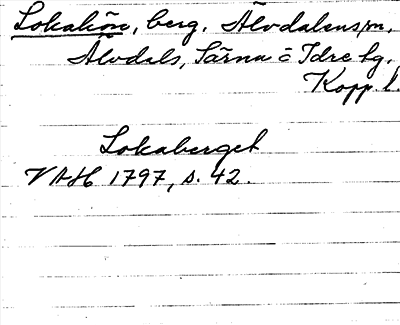 Lokakön, berg. Älvdalens sn,
Älvdals, Särna o Idre tg.
Kopp. l.
Lokaberget
VAH 1797, s. 42.